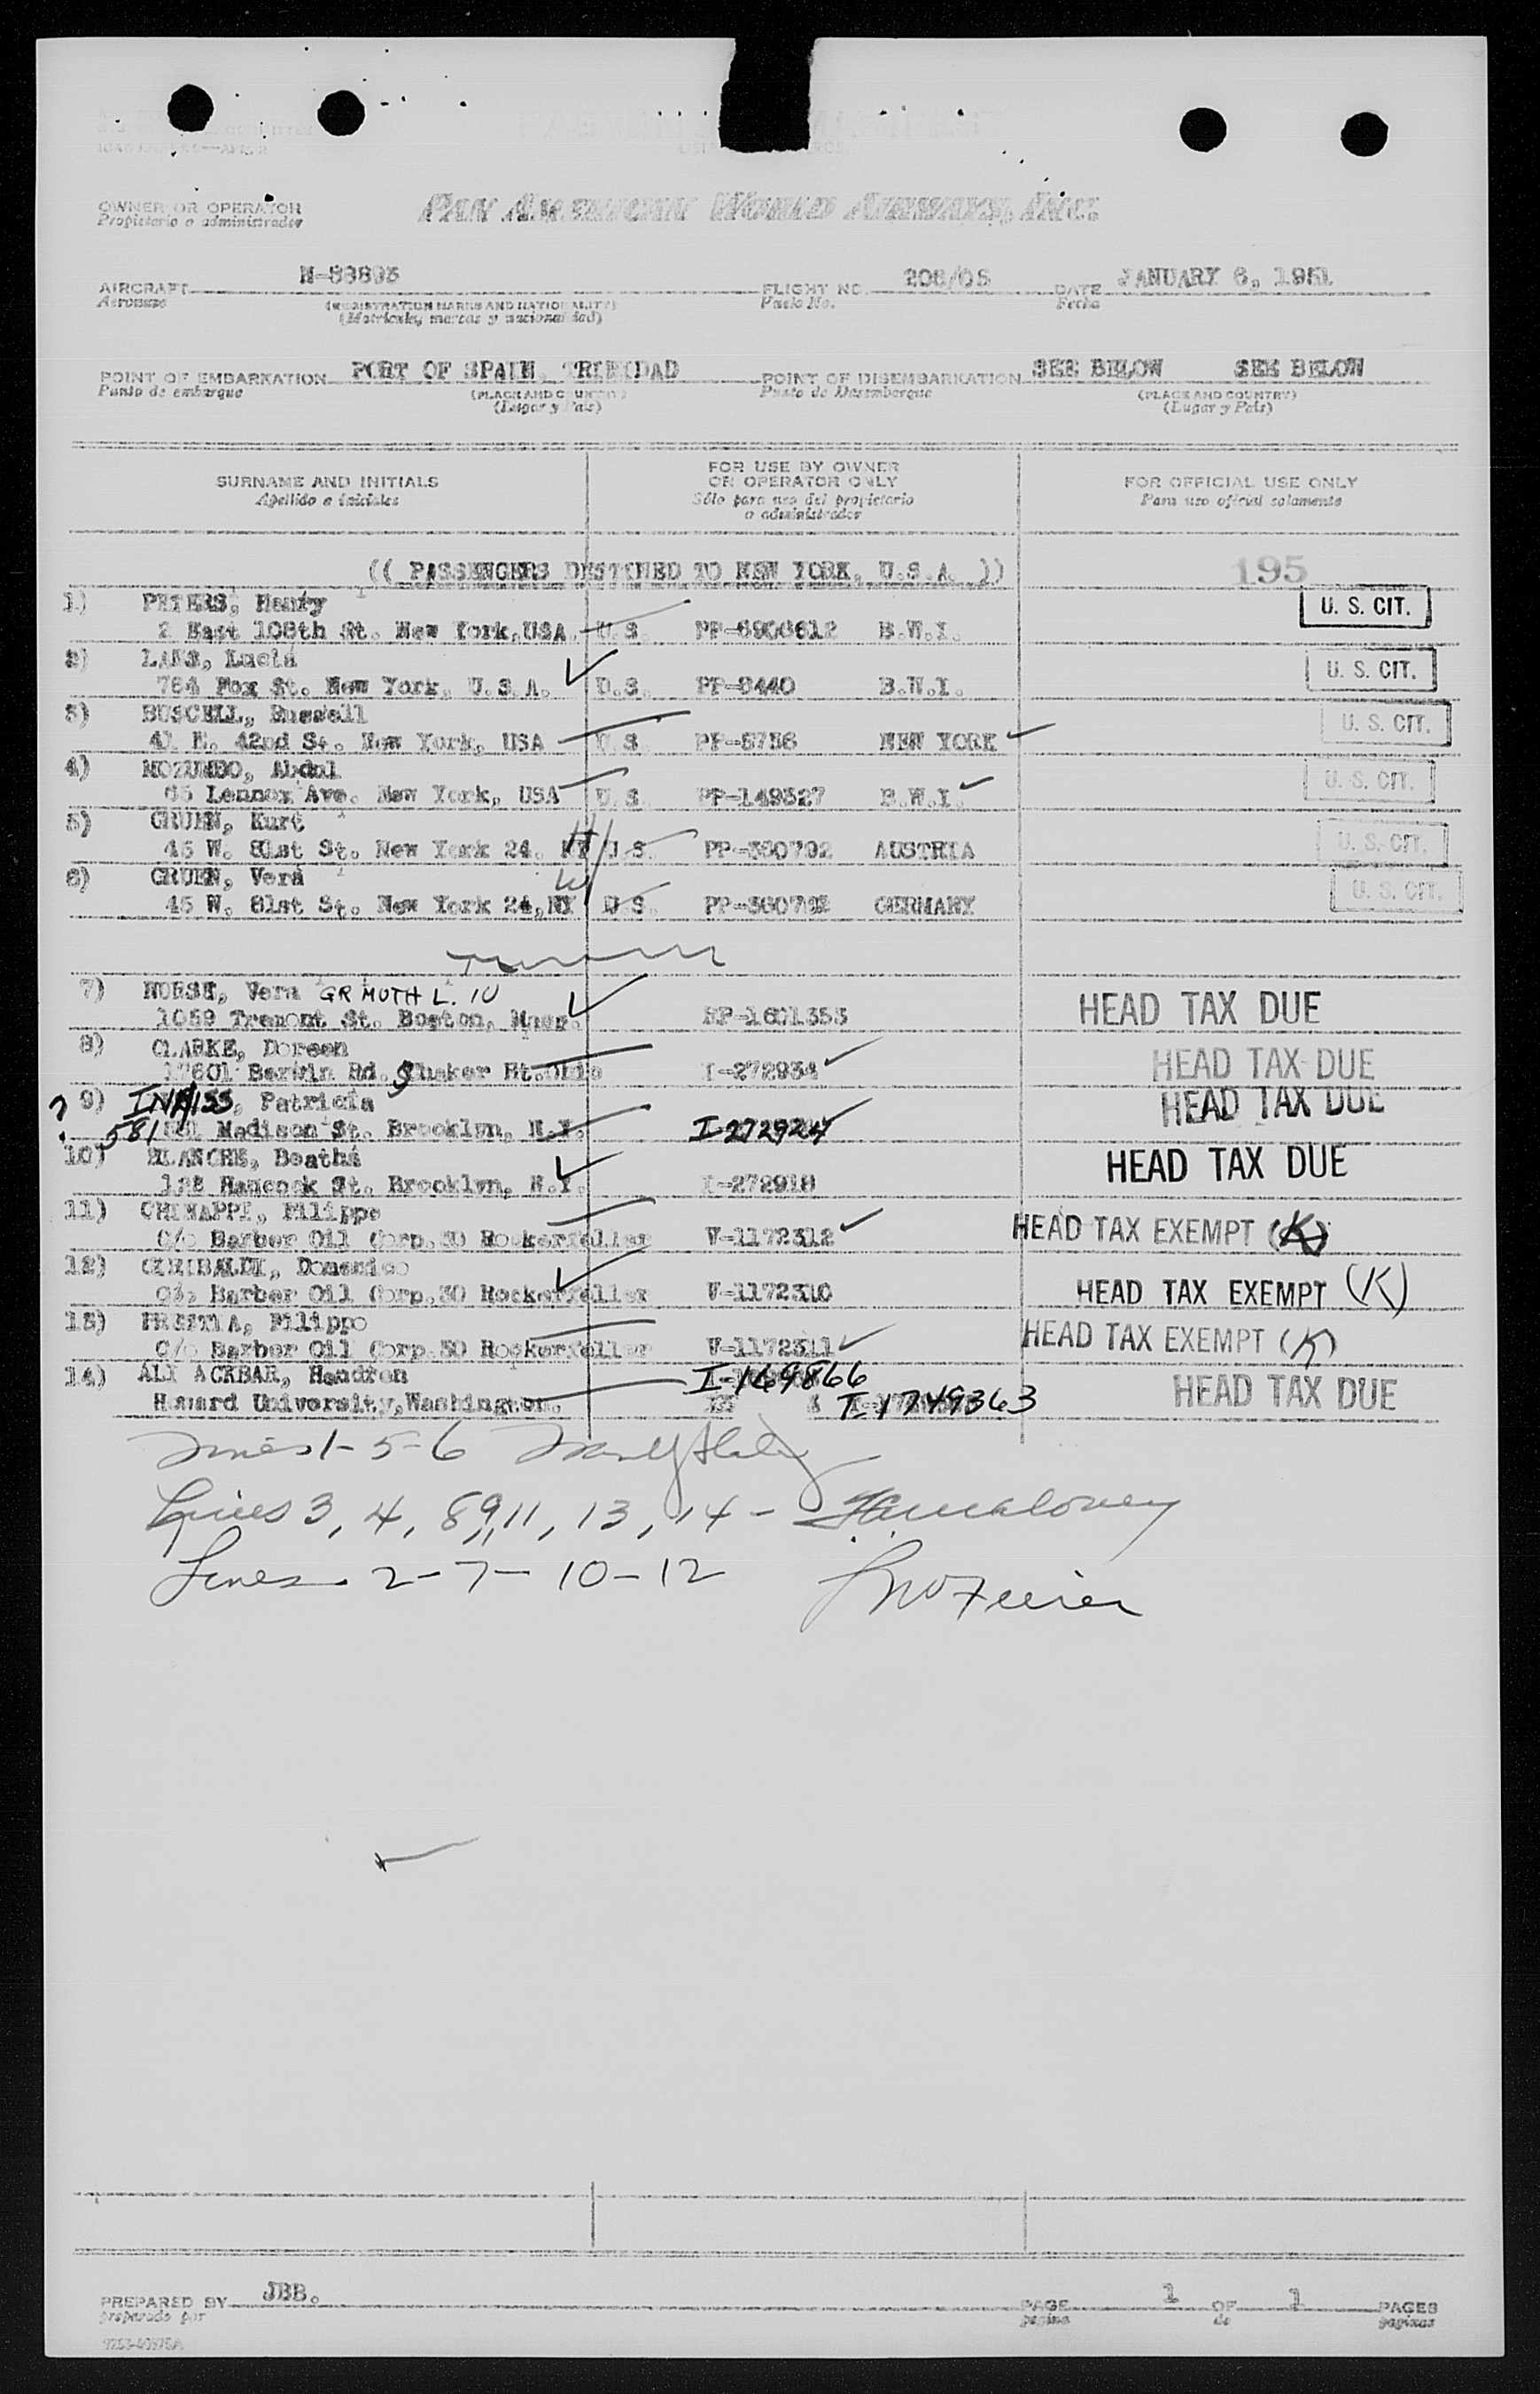 OWNER OR OPERATOR PAN AMERICAN WORLD AIRWAYS, INC.
Propietario o administrador
AIRCRAFT N-88893 FLIGHT NO. 206/05 DATE JANUARY 6, 1951
Aeronave (REGISTRATION MARKS AND NATIONALITY) Vuelo No. Fecha
(Matriculas, marcas y nacionalidad)
POINT OF EMBARKATION PORT OF SPAIN, TRINIDAD POINT OF DISEMBARKATION SEE BELOW SEE BELOW
Punto de embarque (PLACE AND COUNTRY) Punto de Desembarque (PLACE AND COUNTRY)
(Lugar y Pais) (Lugar y Pais)
SURNAME AND INITIALS FOR USE BY OWNER OR OPERATOR ONLY FOR OFFICIAL USE ONLY
Apellido e iniciales Sólo para uso del propietario o administrador Para uso oficial solamente
(( PASSENGERS DESTINED TO NEW YORK, U.S.A. )) 195
1) PETERS, Henry U. S. CIT.
2 East 108th St. New York, USA. U.S. PP-6906612 B.W.I.
2) LANS, Lucia U. S. CIT.
784 Fox St. New York, U.S.A. U.S. PP-8440 B.W.I.
3) BUSCELL, Russell U. S. CIT.
41 E. 42nd St. New York, USA U.S. PP-5736 NEW YORK
4) MOZUMBO, Abdul U. S. CIT.
65 Lennox Ave. New York, USA U.S. PP-149327 B.W.I.
5) GRUEN, Kurt U. S. CIT.
45 W. 81st St. New York 24, NY U.S. PP-360792 AUSTRIA
6) GRUEN, Vera U. S. CIT.
45 W. 81st St. New York 24, NY U.S. GERMANY
7) Vera GR MOTH L. IU HEAD TAX DUE
1059 Tremont St. Boston, Mass. RP-1601353
8) CLARKE, Doreen HEAD TAX DUE
17601 Berwin Rd. Shaker Ht. Ohio I-272934
? 9) INNISS, Patricia HEAD TAX DUE
581 Madison St. Brooklyn, N.Y. I-272924
10) BLANCHE, Beatha HEAD TAX DUE
Hancock St. Brooklyn, N.Y. I-272918
11) CHINAPPI, Filippo HEAD TAX EXEMPT (K)
C/o Barber Oil Corp. 30 Rockerfeller V-1172312
12) GERIBALDI, Domenico HEAD TAX EXEMPT (K)
C/o Barber Oil Corp. 30 Rockerfeller V-1172310
13) Filippo HEAD TAX EXEMPT (K)
C/o Barber Oil Corp 30 Rockerfeller V-1172311
14) ALI ACKBAR, Hamdron I-169866 HEAD TAX DUE
Howard University, Washington. I-1749363
Lines 1-5-6
Lines 3, 4, 8, 9, 11, 13, 14 -
Lines 2-7-10-12
PREPARED BY JBB. PAGE 1 OF 1 PAGES
preparado por pagina de paginas